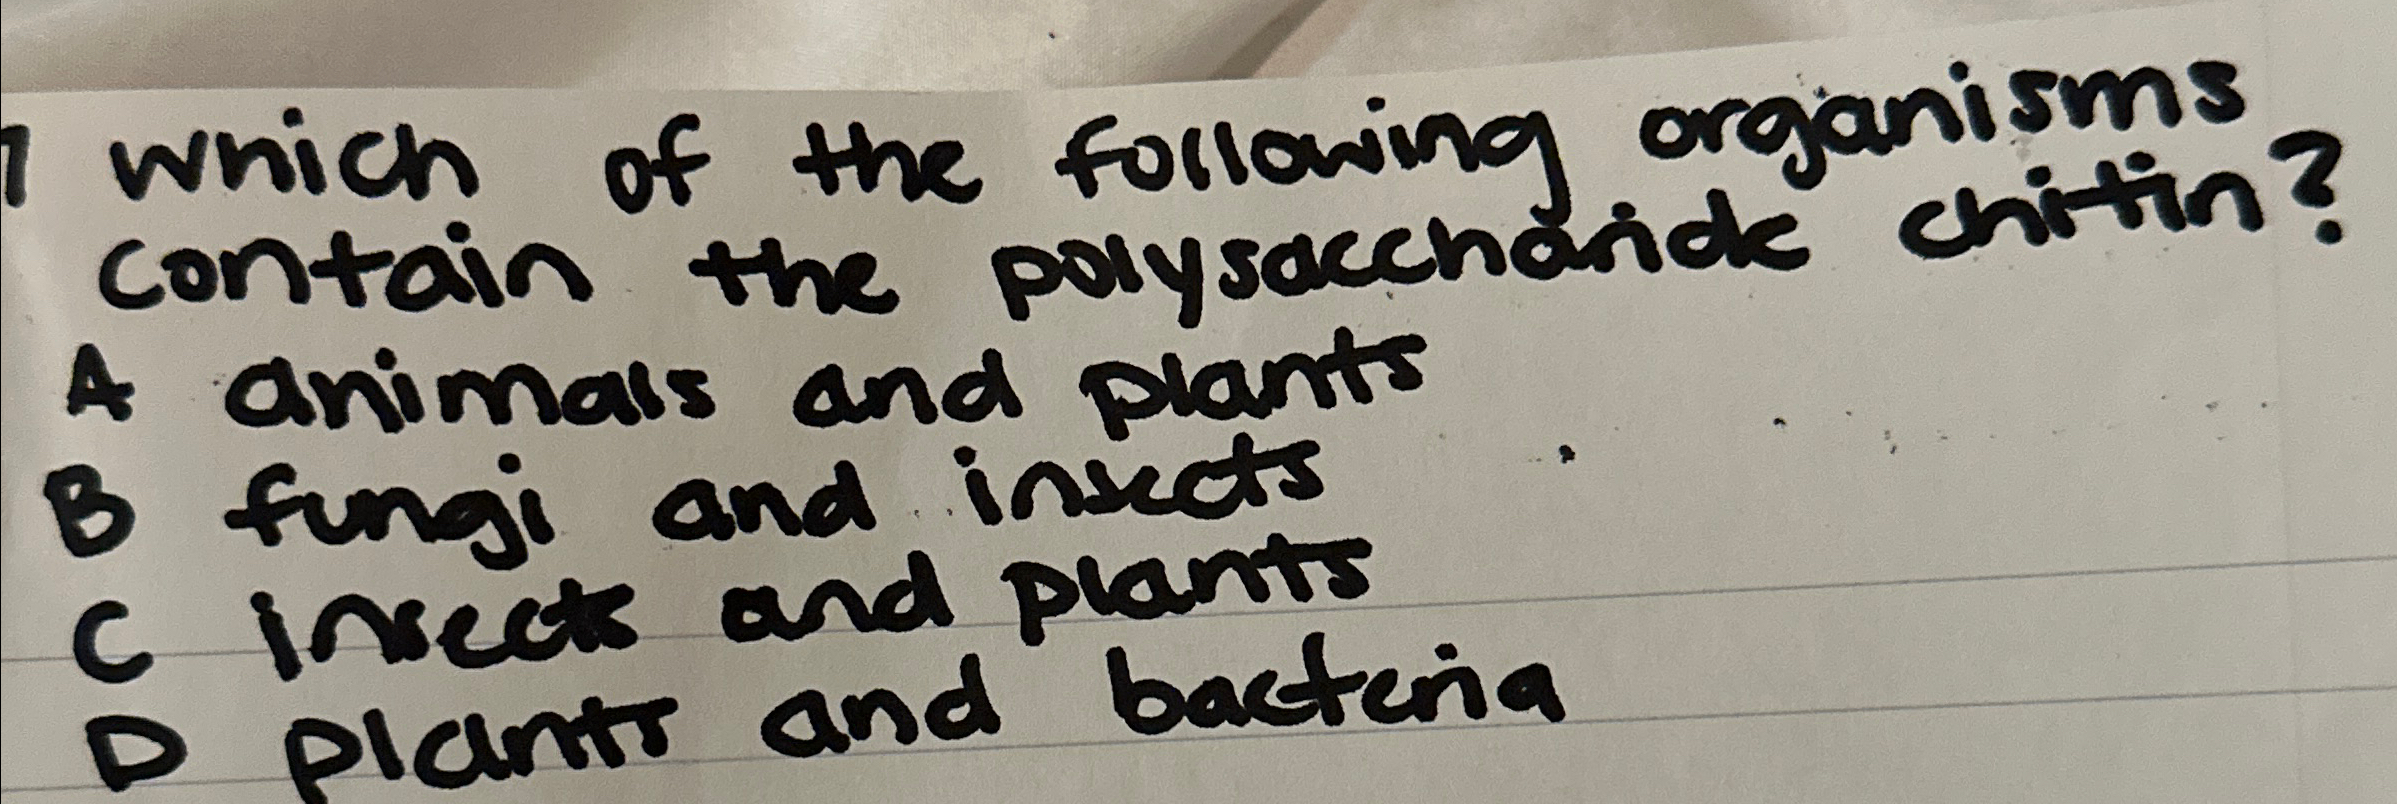 7 which of the following organisms
contain the polysaccharide chitin?
A animals and plants
B fungi and insects
C insects and plants
D plants and bacteria